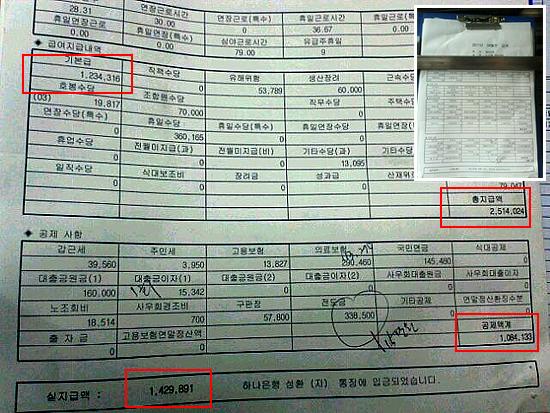 28.31 연장근로시간 연장근로(특수) 휴일근로시간
30.00 0 36.67 0.00
휴일근로(특수) 휴일연장(특수) 심야근로시간 유급주휴일
0.00 0.00 79.00 9
◆ 급여지급내역
기본급 직책수당 유해위험 생산장려 근속수당
1,234,316 0 53,789 60,000
호봉수당 조합원수당 직무수당 주택수당
(03) 19,817 70,000 0
연장수당(특수) 휴일수당 휴일수당(특수) 휴일연장수당 휴일연장(특수)
0 360,165 0 0
휴업수당 전월미지급(과) 전월미지급(비) 기타수당(과) 기타수당
0 0 0 13,095
일직수당 식대보조비 장려금 성과급 산재위
0 0 0 0 79,047
총지급액
2,514,024
◆ 공제 사항
갑근세 주민세 고용보험 의료보험 국민연금 식대공제
39,560 3,950 13,827 290,460 145,480 0
대출금원금(1) 대출금이자(1) 대출금원금(2) 대출금이자(2) 사우회대출원금 사우회대출이자
160,000 15,342 0 0 0 0
노조회비 사우회경조비 구판장 전도금 기타공제 연말정산환징수분
18,514 700 57,800 338,500 0 0
출자금 고용보험연말정산액 공제액계
0 0 1,084,133
실지급액 : 1,429,891 하나은행 성환 (지) 통장에 입금되었습니다.